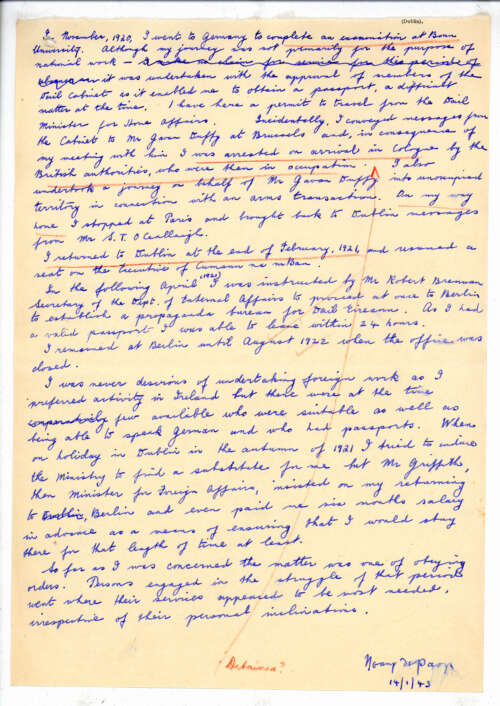 (Dublin),
In November, 1920, I went to Germany to complete an examination at Bonn
University. Although my journey was not primarily for the purpose of
national work – & make no claim for service for this period of
absence – it was undertaken with the approval of members of the
Dail Cabinet as it enabled me to obtain a passport, a difficult
matter at the time. I have here a permit to travel from the Dail
Minister for Home Affairs. Incidentally, I conveyed messages from
the Cabinet to Mr Gavan Duffy at Brussels and, in consequence of
my meeting with him I was arrested on arrival in Cologne by the
British authorities, who were then in occupation. I also
undertook a journey on behalf of Mr Gavan Duffy into unoccupied
territory in connection with an arms transaction. On my way
home I stopped at Paris and brought back to Dublin messages
from Mr S. T. O Ceallaigh.
I returned to Dublin at the end of February, 1921, and resumed a
seat on the Executive of Cumann na mBan.
In the following April (1921) I was instructed by Mr Robert Brennan
Secretary of the Dept. of External Affairs to proceed at once to Berlin
to establish a propaganda bureau for Dail Eireann. As I had
a valid passport I was able to leave within 24 hours.
I remained at Berlin until August 1922 when the office was
closed.
I was never desirous of undertaking foreign work as I
preferred activity in Ireland but there were at the time
comparatively few available who were suitable as well as
being able to speak German and who had passports. When
on holiday in Dublin in the autumn of 1921 I tried to induce
the Ministry to find a substitute for me but Mr Griffith,
then Minister for Foreign Affairs, insisted on my returning
to Dublin, Berlin and even paid me six months salary
in advance as a means of ensuring that I would stay
there for that length of time at least.
So far as I was concerned the matter was one of obeying
orders. Persons engaged in the struggle of that period
went where their services appeared to be most needed,
irrespective of their personal inclinations.
Nancy
14/1/43
Detained?